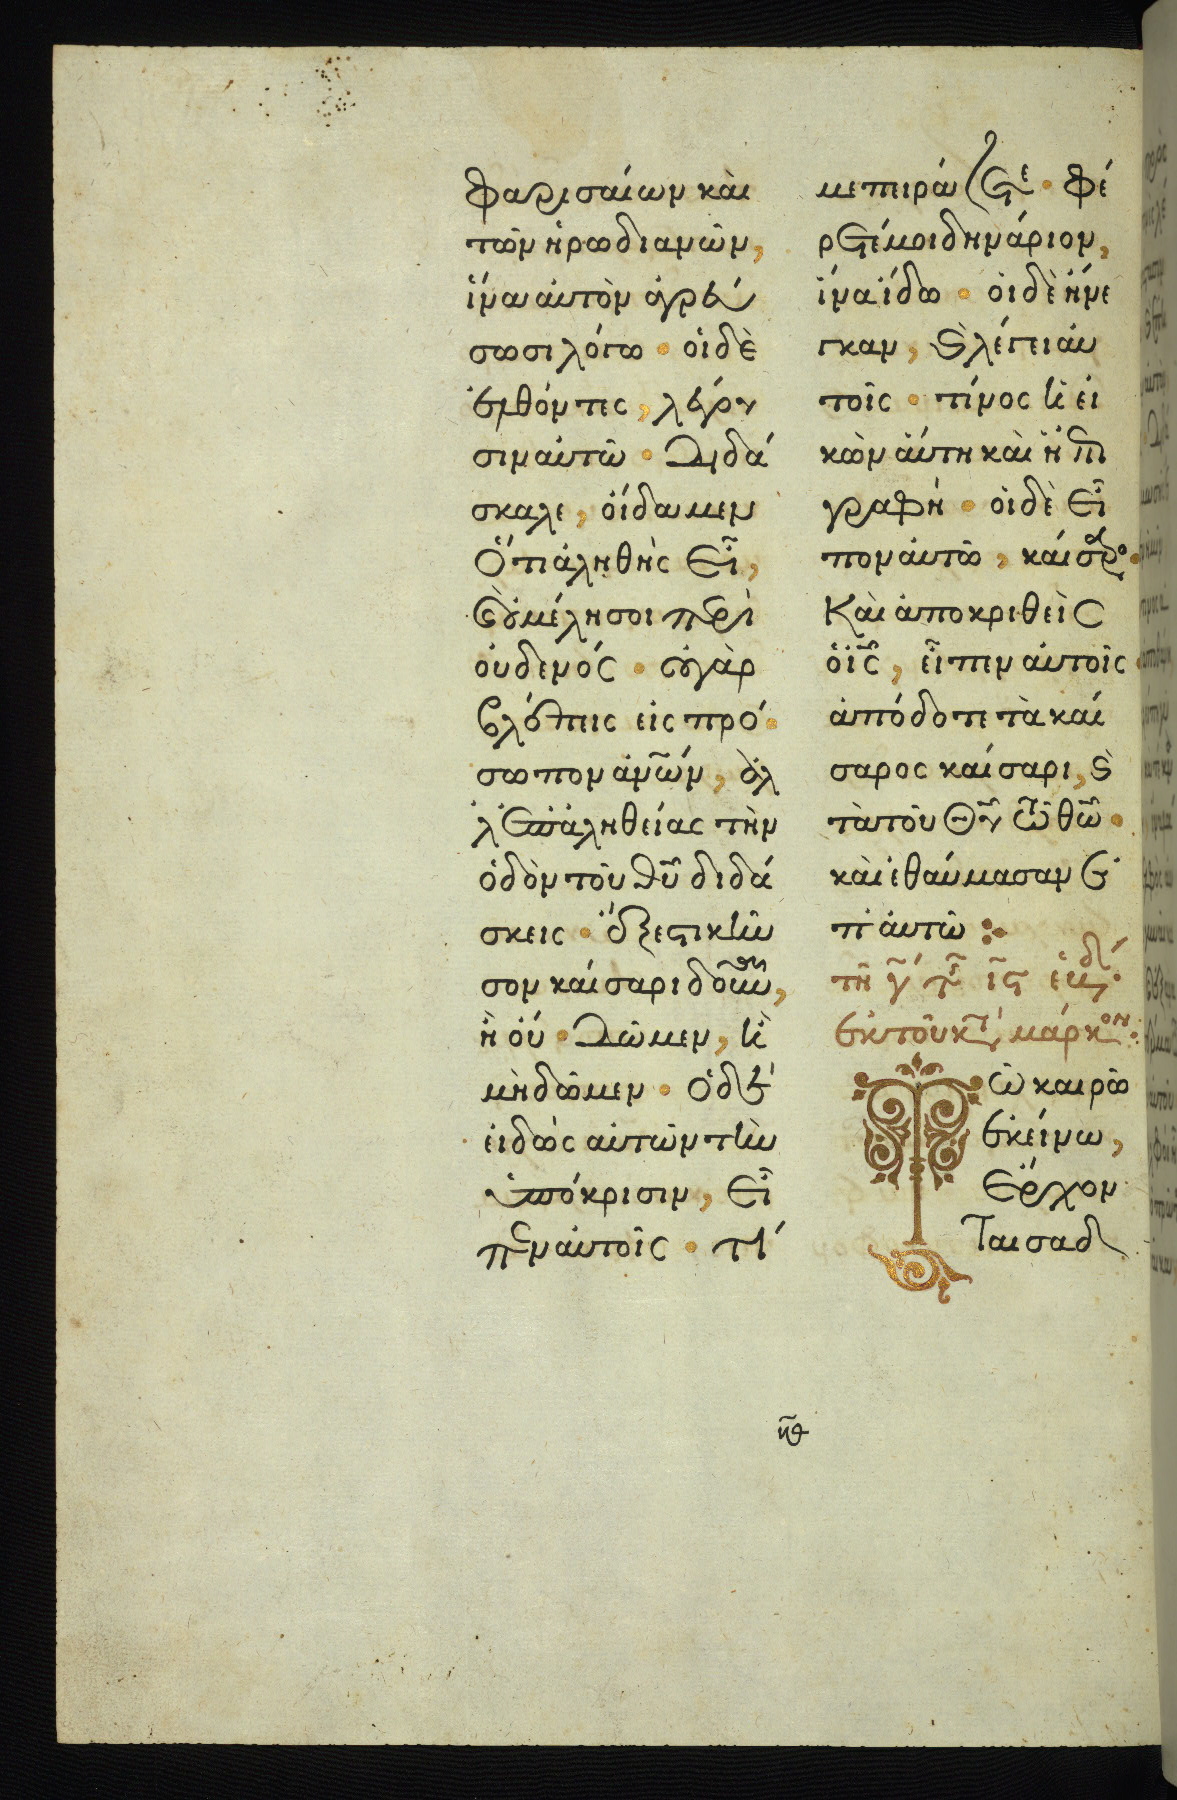 φαρισαίων καὶ
τῶν ἡρωδιανῶν,
ἵνα αὐτὸν ἀγρεύ
σωσι λόγω · οἱ δὲ
ἐλθόντες, λέγου
σιν αὐτῶ · Διδά
σκαλε, οἴδαμεν
ὅτι ἀληθὴς εἶ,
καὶ οὐ μέλησοι περὶ
οὐδενός · οὐ γὰρ
βλέπεις εἰς πρό·
σωπον ἀνῶν, ἀλ
λ' ἐπ' ἀληθείας τὴν
ὁδὸν τοῦ θῦ διδά
σκεις · ἔξεστι κῆν
σον καίσαρι δοῦναι,
ἢ οὐ · Δῶμεν, ἢ
μὴ δῶμεν · ὁ δὲ
εἰδὼς αὐτῶν τὴν
ὑπόκρισιν, εἶ
πεν αὐτοῖς · τί
με πειράζετε · φέ
ρετέ μοι δηνάριον,
ἵνα ἴδω · οἱ δὲ ἤνε
γκαν, καὶ λέγει αὐ
τοῖς · τίνος ἡ εἰ
κὼν αὕτη καὶ ἡ ἐπι
γραφή · οἱ δὲ εἶ
πον αὐτῶ, καίσαρος·
Καὶ ἀποκριθεὶς
ὁ ἰς, εἶπεν αὐτοῖς·
ἀπόδοτε τὰ καί
σαρος καίσαρι, καὶ
τὰ τοῦ Θῦ τῶ θῶ ·
καὶ ἐθαύμασαν ἐ
π' αὐτῶ :·
τῆ γ τῆς ις ἑβδ·
ἐκ τοῦ κτ μάρκον:
Τῶ καιρῶ
ἐκείνω,
ἔρχον
ται σαδ
νθ